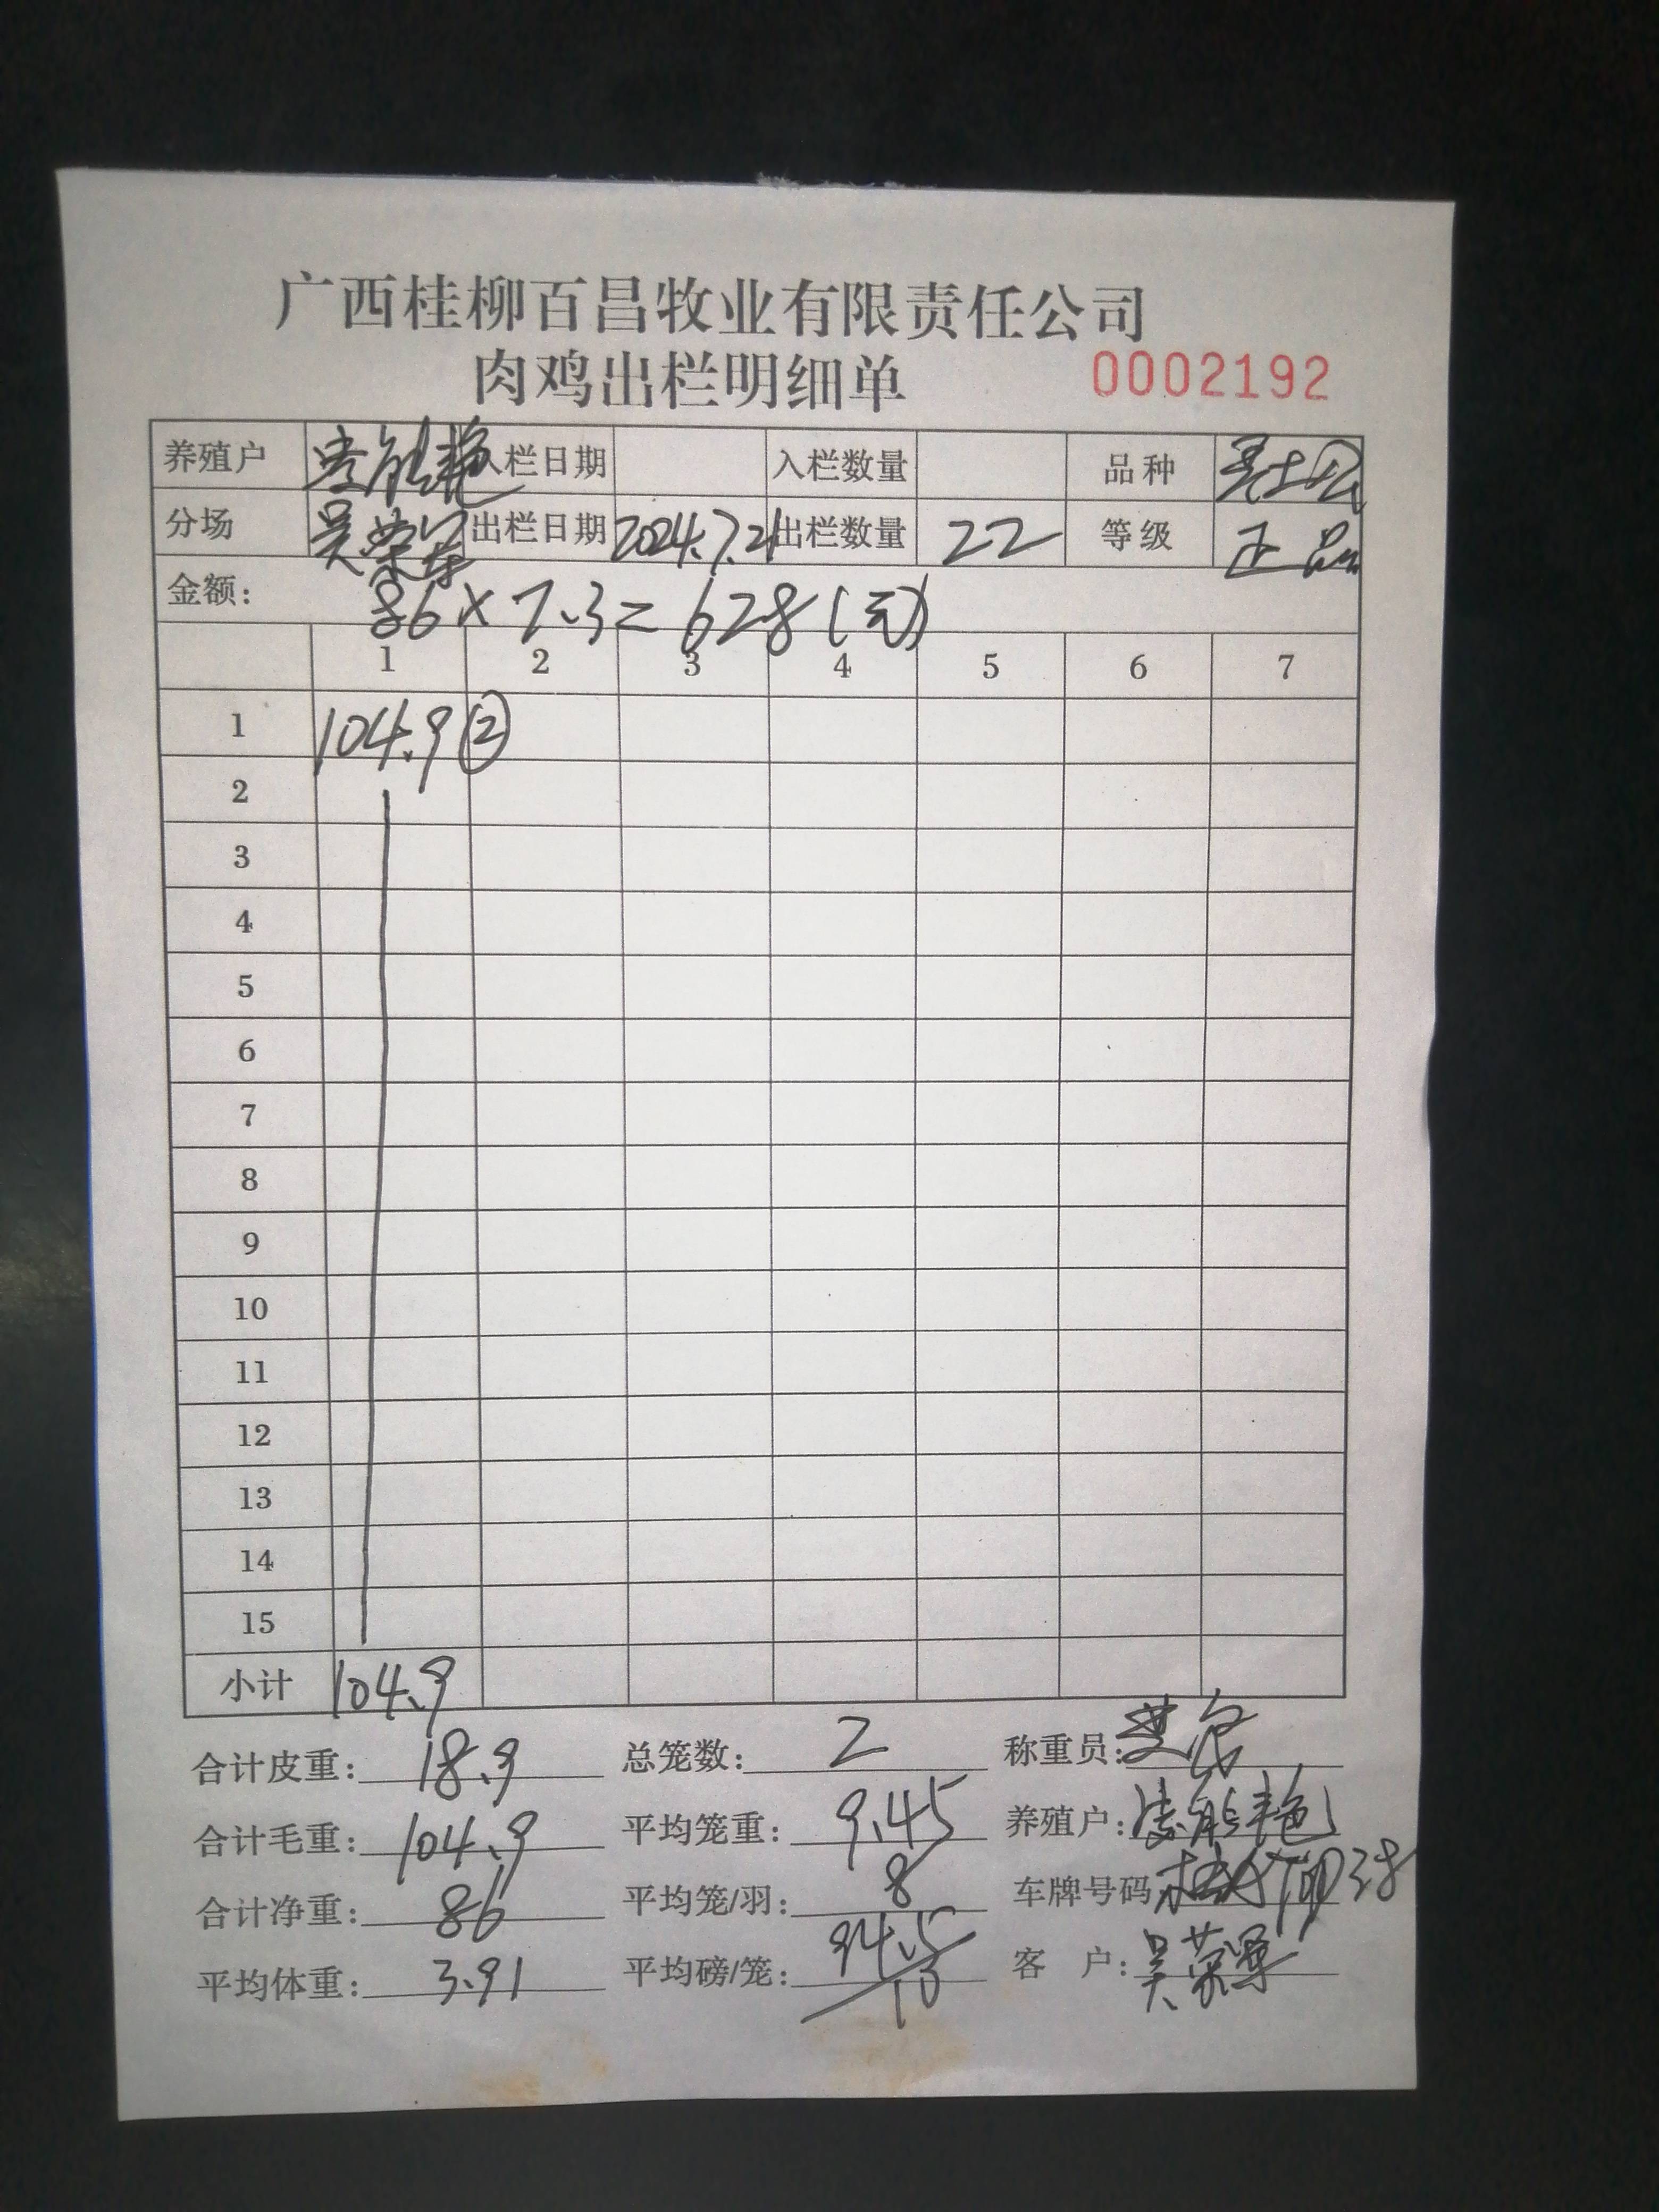 广西桂柳百昌牧业有限责任公司
肉鸡出栏明细单 0002192
养殖户 入栏日期 入栏数量 品种
分场 吴荣军 出栏日期 2024.7.21 出栏数量 22 等级 正品
金额: 86×7.3=628(元)
1 2 3 4 5 6 7
1 104.9 ②
2
3
4
5
6
7
8
9
10
11
12
13
14
15
小计 104.9
合计皮重: 18.9 总笼数: 2 称重员:
合计毛重: 104.9 平均笼重: 9.45 养殖户:
合计净重: 86 平均笼/羽: 8 车牌号码
平均体重: 3.91 平均磅/笼: 客 户: 吴荣军